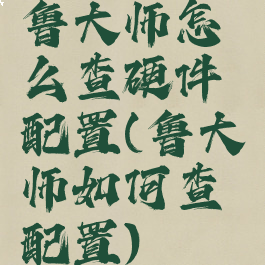 鲁大师怎
么查硬件
配置(鲁大
师如何查
配置)